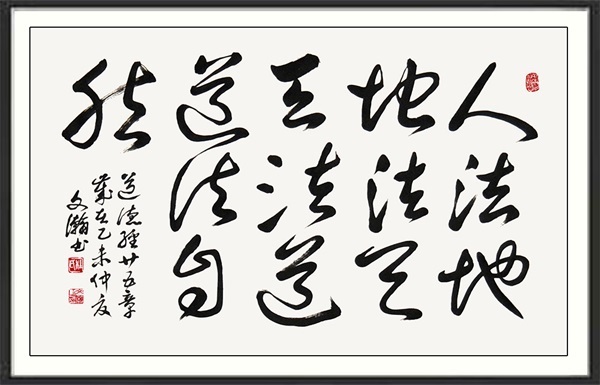 人法地
地法天
天法道
道法自
然
道德經廿五章
歲在乙未仲夏
文瀚书